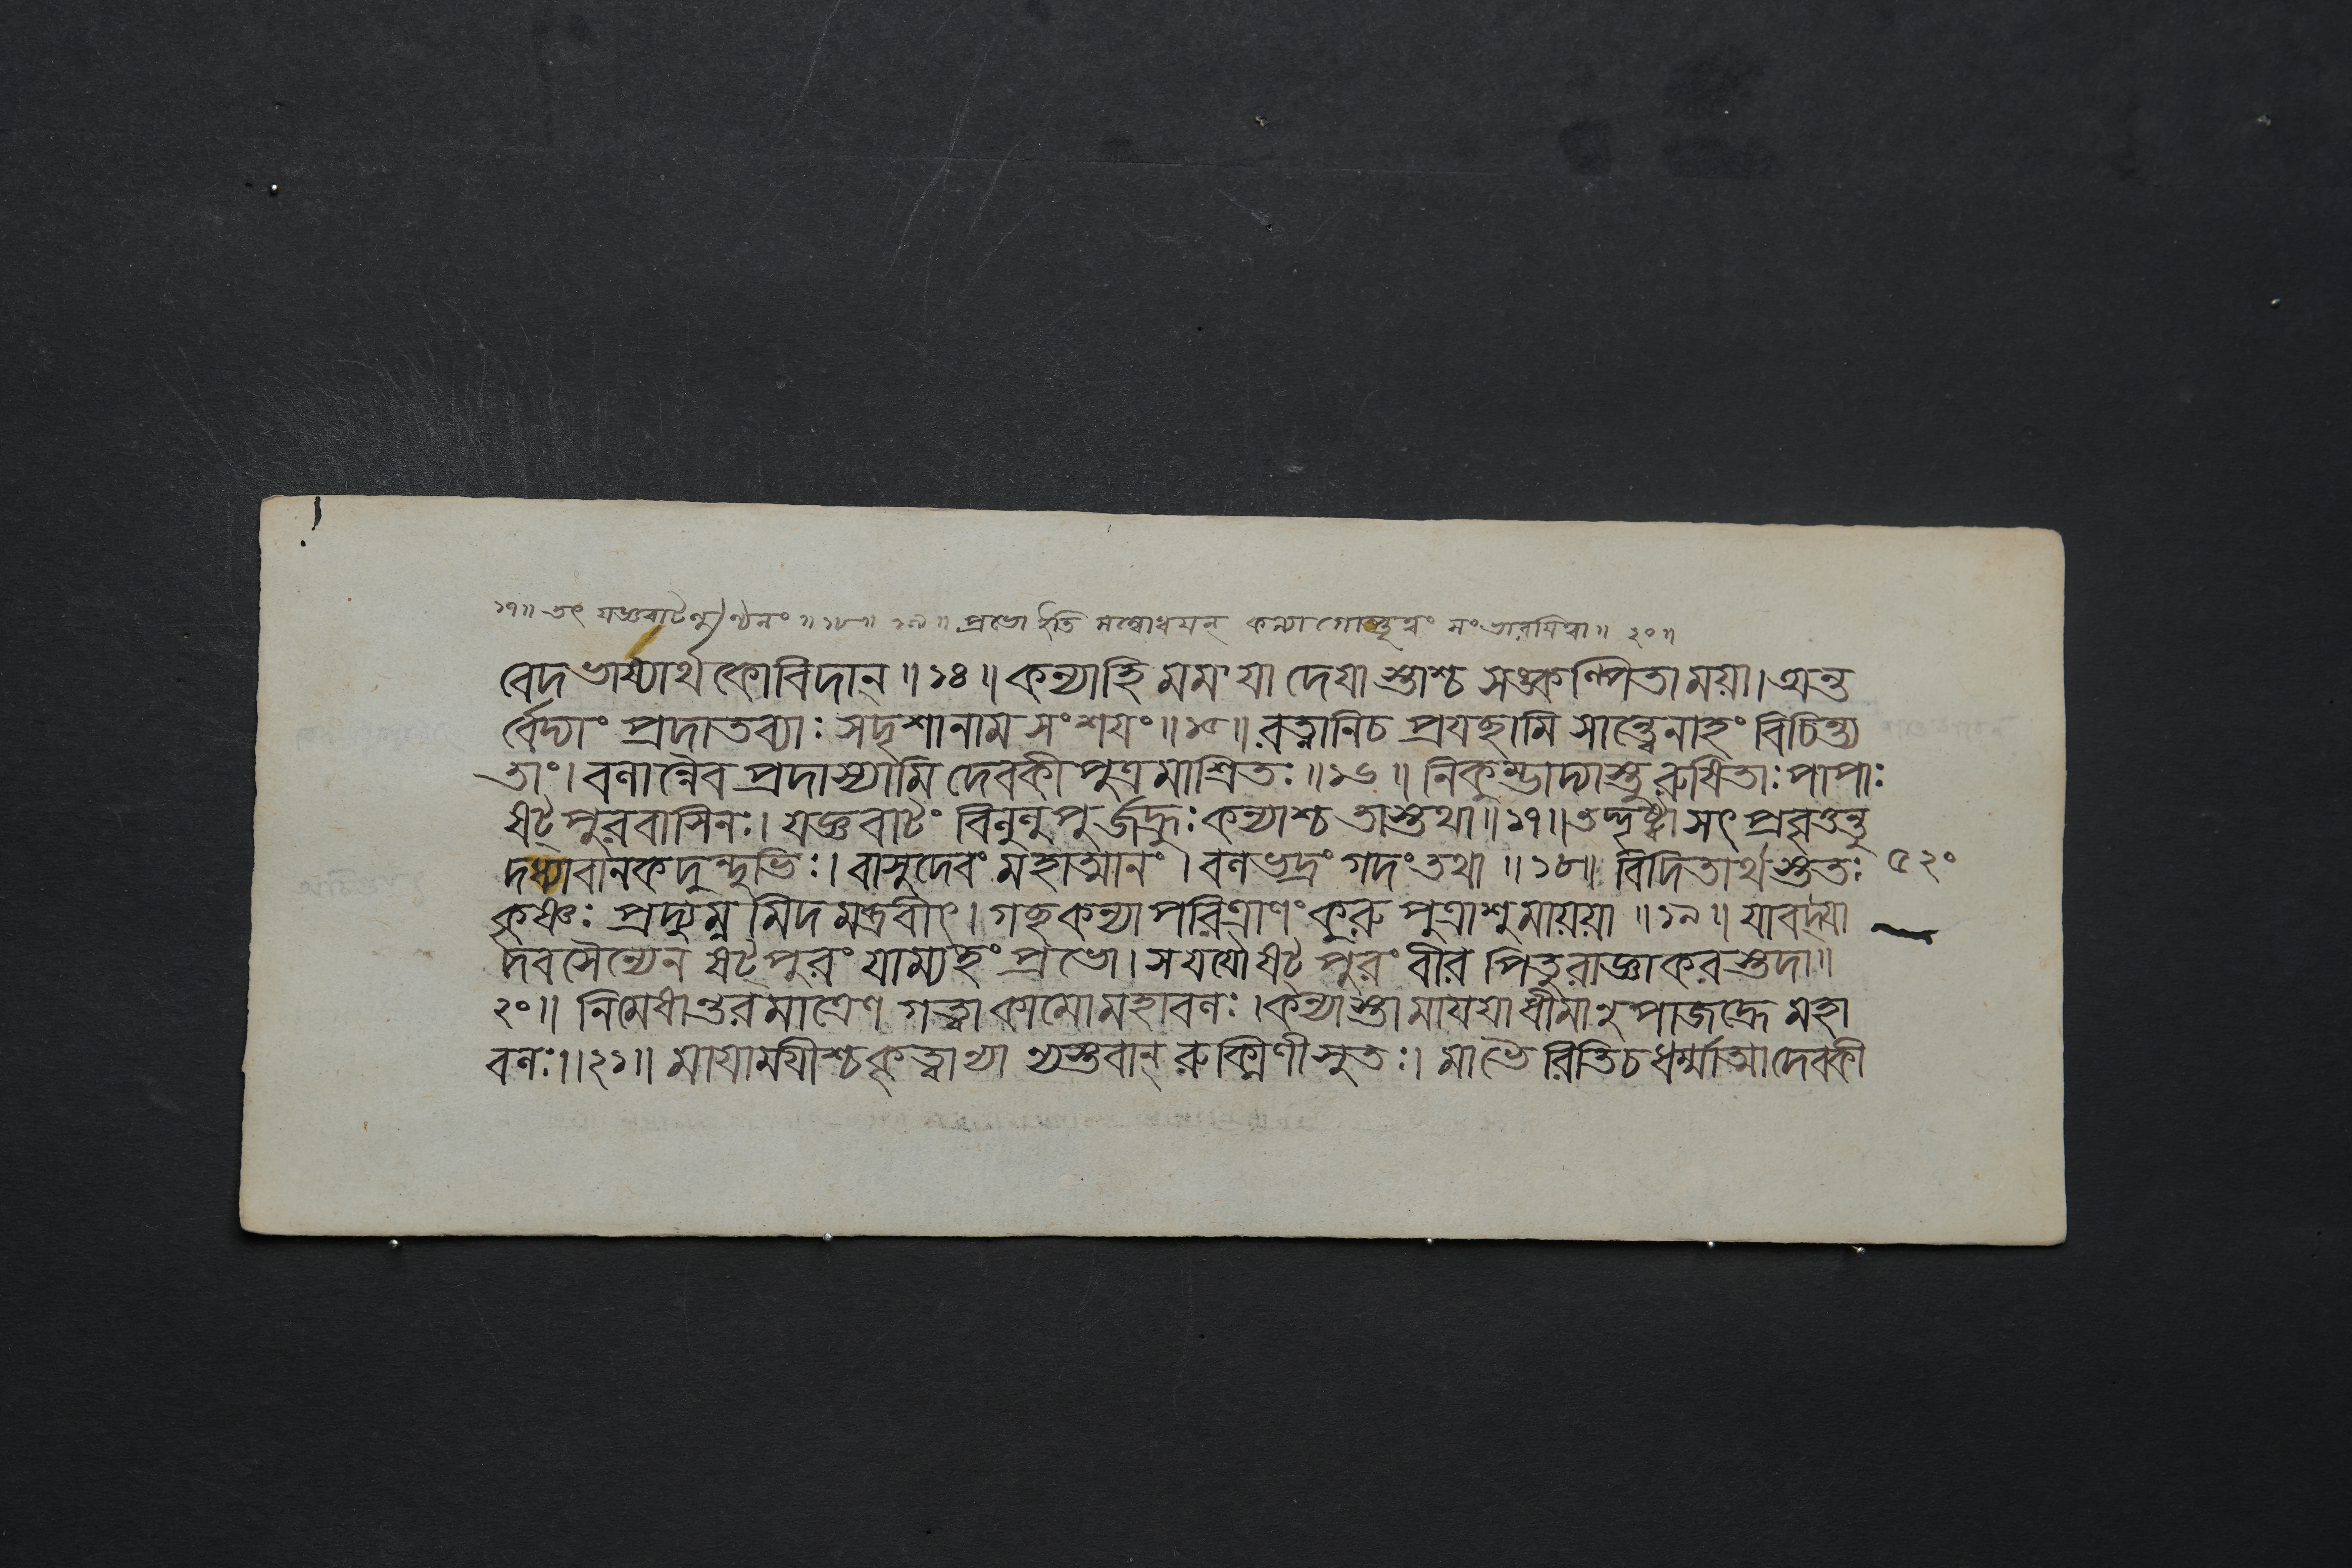 ১৭॥ তৎ যজ্ঞবাটলুণ্ঠনং॥ ১৮॥ ১৯॥ প্রভো ইতি সম্বোধয়ন্ কন্যাগোপ্তৃত্বং সংভারয়িত্বা॥ ২০॥
বেদভাষ্যার্থকোবিদান্॥ ১৪॥ কন্যাহি মম যা দেয়া স্তাশ্চ সঙ্কল্পিতা ময়া। অন্ত
র্ব্বেদ্যাং প্রদাতব্যাঃ সদৃশানামসংশয়ং॥ ১৫॥ রত্নানিচ প্রযচ্ছামি সান্ত্বেনাহং বিচিন্ত্য
তাং। বলান্নৈব প্রদাস্যামি দেবকীপুত্রমাশ্রিতঃ॥ ১৬॥ নিকুম্ভাদ্যাস্তু রুষিতাঃ পাপাঃ
ষট্পুরবাসিনঃ। যজ্ঞবাটং বিলুলুপুর্জহ্রুঃ কন্যাশ্চ তাস্তথা॥ ১৭॥ তদ্দৃষ্ট্বা সৎ প্রবৃত্তন্তু
দধ্যাবানকদুন্দুভিঃ। বাসুদেবং মহাত্মানং। বলভদ্রং গদং তথা॥ ১৮॥ বিদিতার্থস্ততঃ ৫২০
কৃষ্ণঃ প্রদ্যুম্নমিদমব্রবীৎ। গচ্ছ কন্যাপরিত্রাণং কুরু পুত্রাশু মায়য়া॥ ১৯॥ যাবদ্যা
দবসৈন্যেন ষট্পুরং যাম্যহং প্রভো। স যযৌ ষট্পুরং বীর পিতুরাজ্ঞাকরস্তদা॥
২০॥ নিমেষান্তরমাত্রেণ গত্বা কামো মহাবলঃ। কন্যাস্তা মায়য়া ধীমানুপাজহ্রে মহা
বলঃ॥ ২১॥ মায়াময়ীশ্চ কৃত্বান্যা ন্যস্তবান্ রুক্মিণীসুতঃ। মাভৈরিতিচ ধর্ম্মাত্মা দেবকী